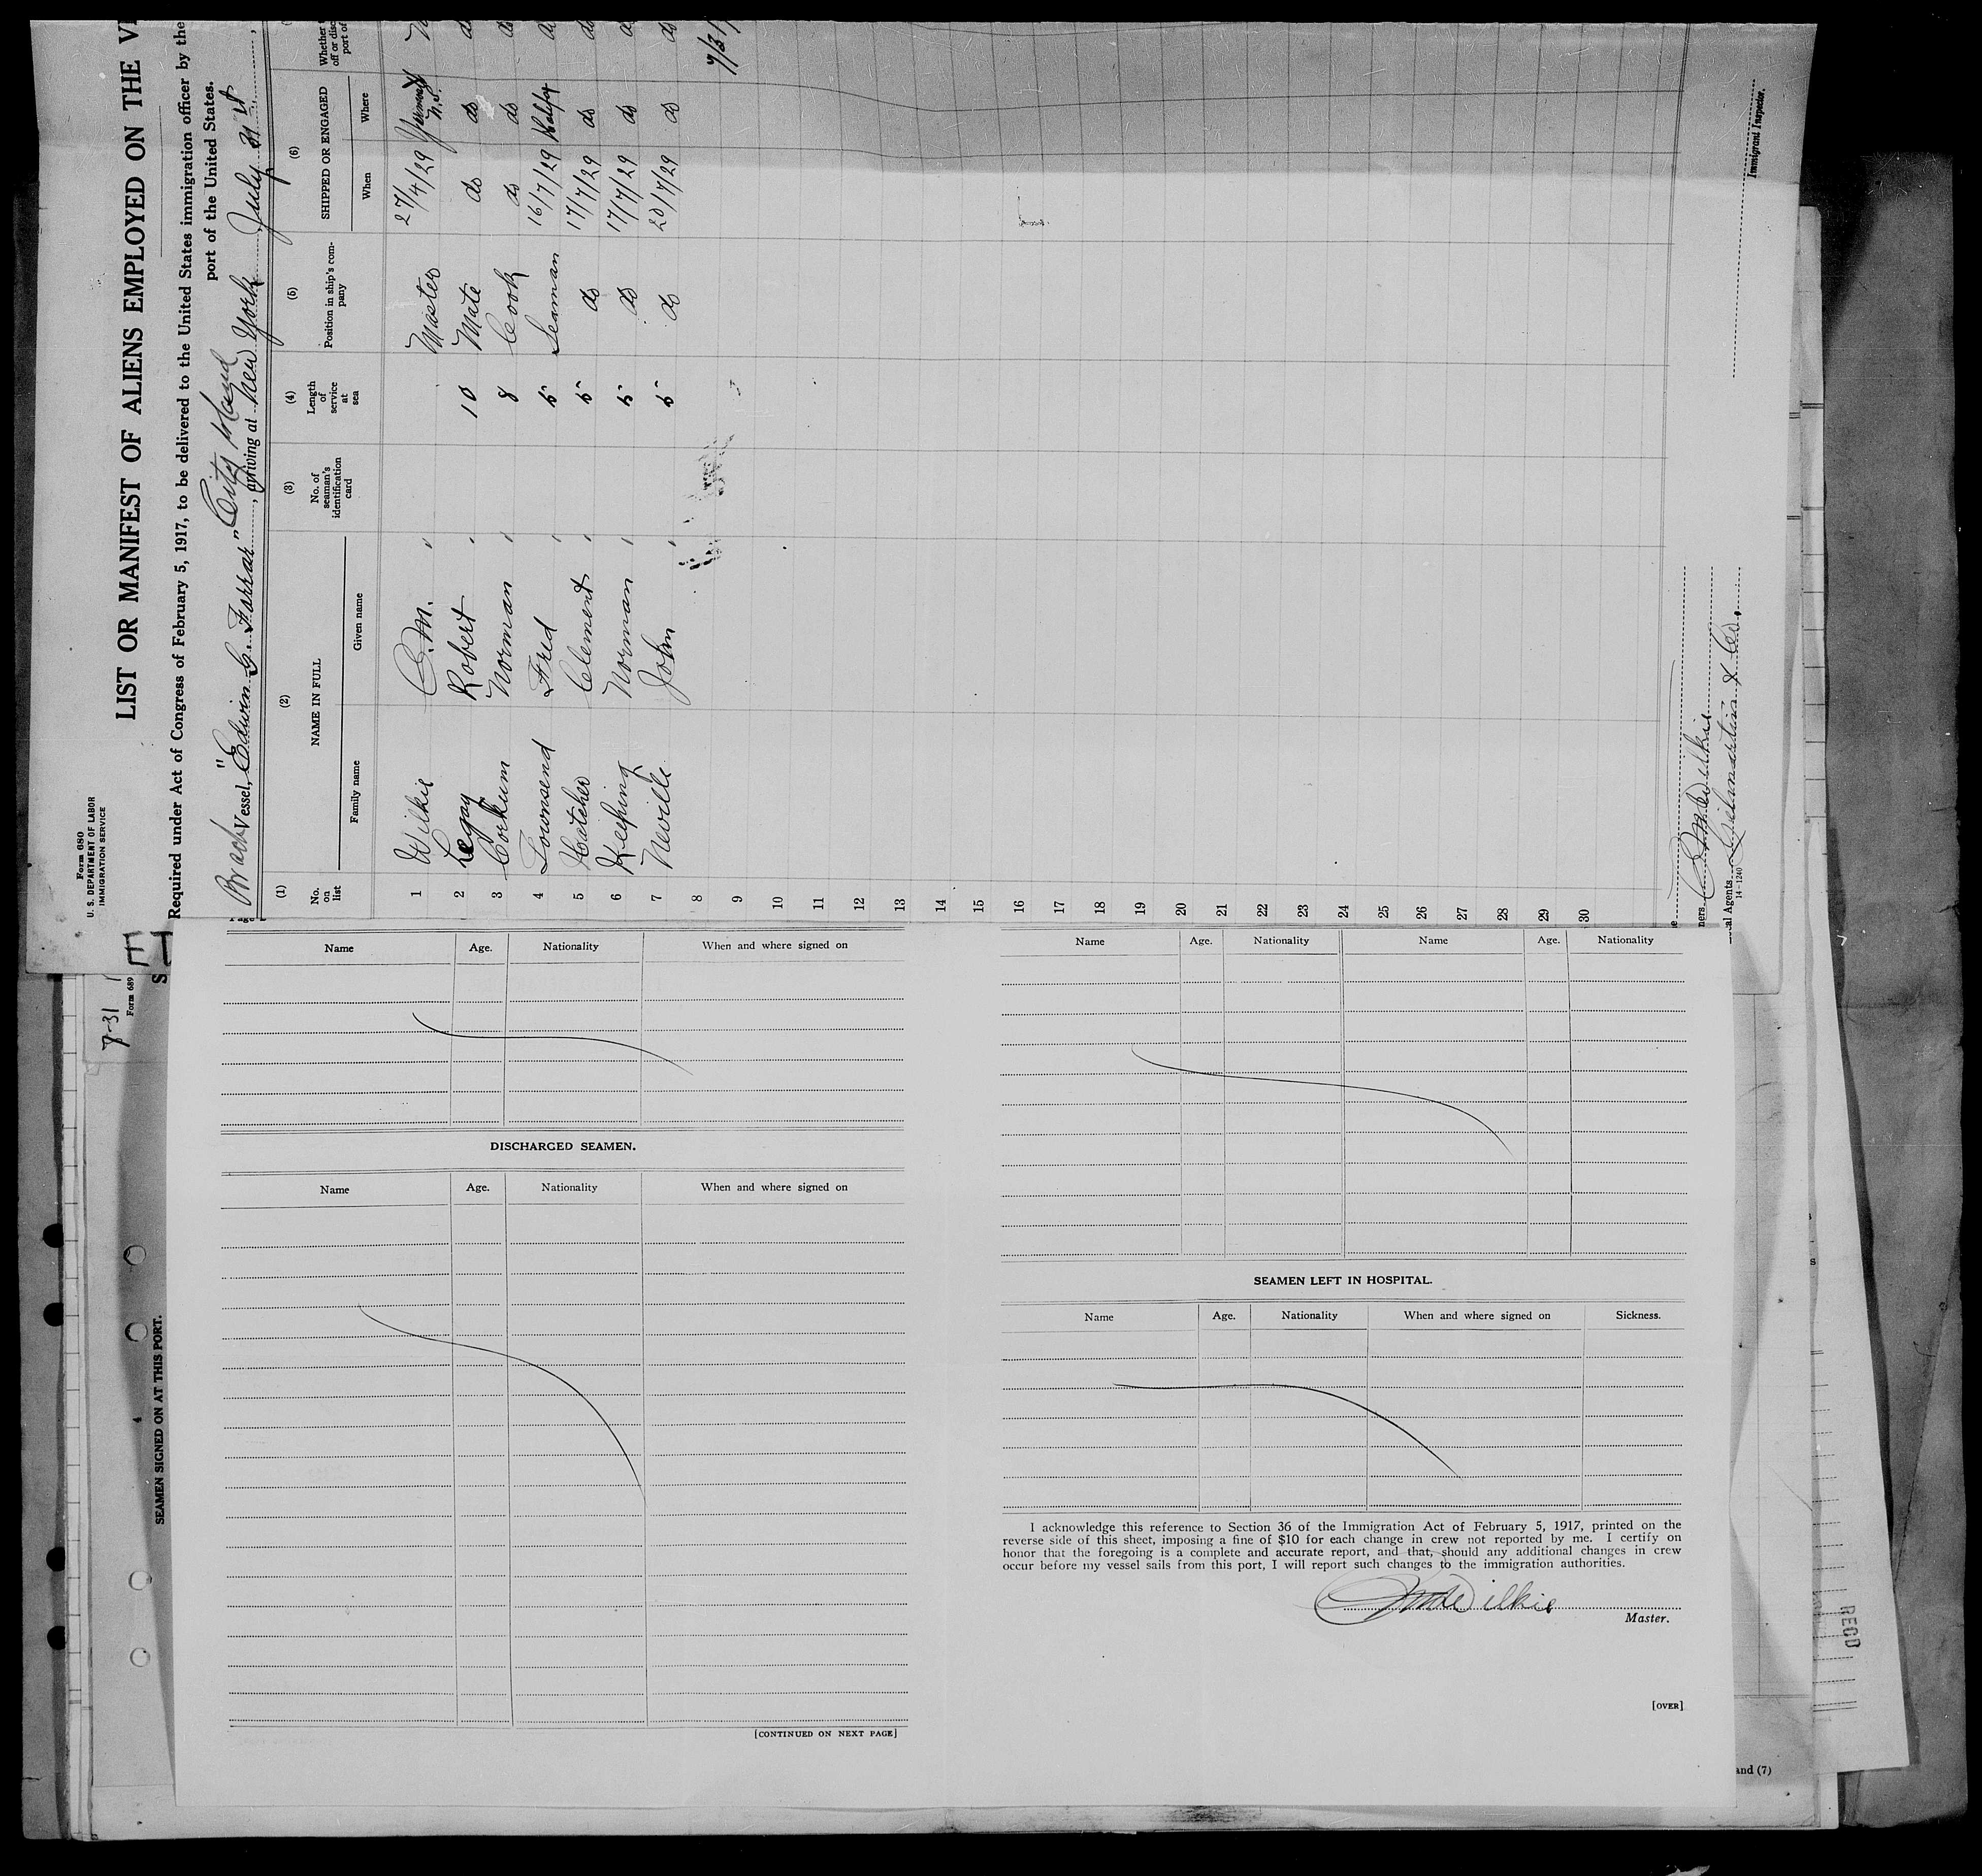 Form 680
U. S. DEPARTMENT OF LABOR
IMMIGRATION SERVICE
LIST OR MANIFEST OF ALIENS EMPLOYED ON THE
Required under Act of Congress of February 5, 1917, to be delivered to the United States immigration officer by the
port of the United States.
Vessel, "Edwin G. Farrar" City Island, arriving at New York July 31st,
(1) (2) (3) (4) (5) (6)
No. on list NAME IN FULL No. of seaman's identification card Length of service at sea Position in ship's company SHIPPED OR ENGAGED Whether
Family name Given name When Where
1 Wilkie C. M. Master 27/4/29 N.S.
2 Legay Robert 10 Mate do do do
3 Corkum Norman 8 Cook do do do
4 Townsend Fred 5 Seaman 16/7/29 Halifax do
5 Hatcher Clement 5 do 17/7/29 do do
6 Keeping Norman 5 do 17/7/29 do do
7 Neville John 5 do 20/7/29 do do
8
9
10
11
12
13
14
15
16
17
18
19
20
21
22
23
24
25
26
27
28
29
30
Wilkie
& Co.
al Agents
14-1240
Immigrant Inspector.
7-31
Form 689
SEAMEN SIGNED ON AT THIS PORT.
Name Age. Nationality When and where signed on
DISCHARGED SEAMEN.
Name Age. Nationality When and where signed on
[CONTINUED ON NEXT PAGE]
Name Age. Nationality Name Age. Nationality
SEAMEN LEFT IN HOSPITAL.
Name Age. Nationality When and where signed on Sickness.
I acknowledge this reference to Section 36 of the Immigration Act of February 5, 1917, printed on the
reverse side of this sheet, imposing a fine of $10 for each change in crew not reported by me. I certify on
honor that the foregoing is a complete and accurate report, and that, should any additional changes in crew
occur before my vessel sails from this port, I will report such changes to the immigration authorities.
Wilkie
Master.
[OVER]
and (7)
RECD